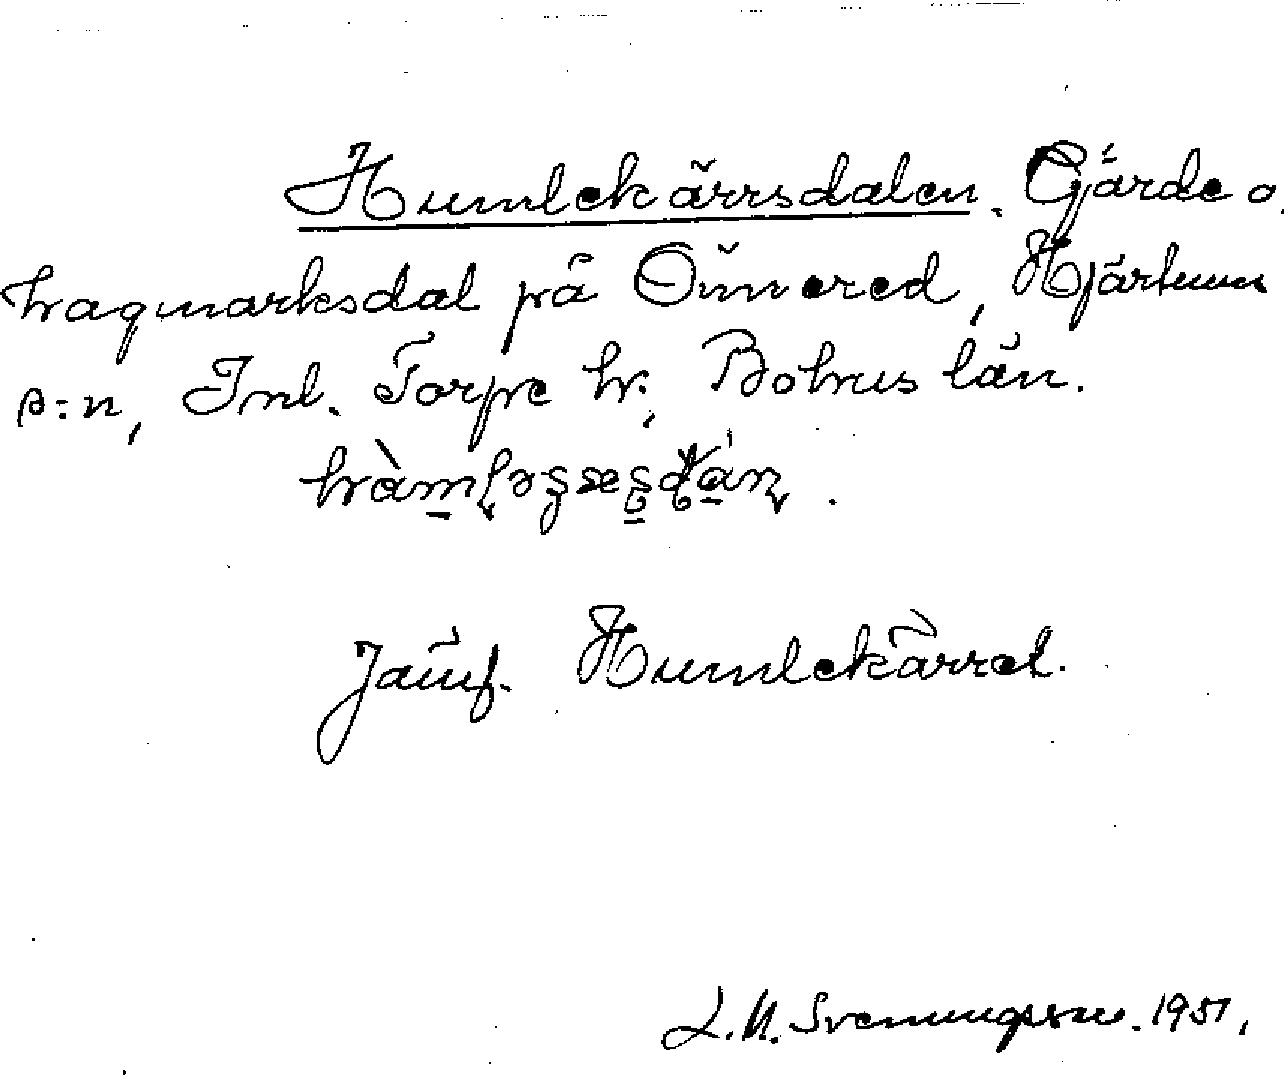 Humlekärrsdalen. Gärde o.
hagmarksdal på Önnered, Hjärtums
s:n, Inl. Torpe hr, Bohus län.
Jämf. Humlekärret.
L. M. Svenungsson. 1951.